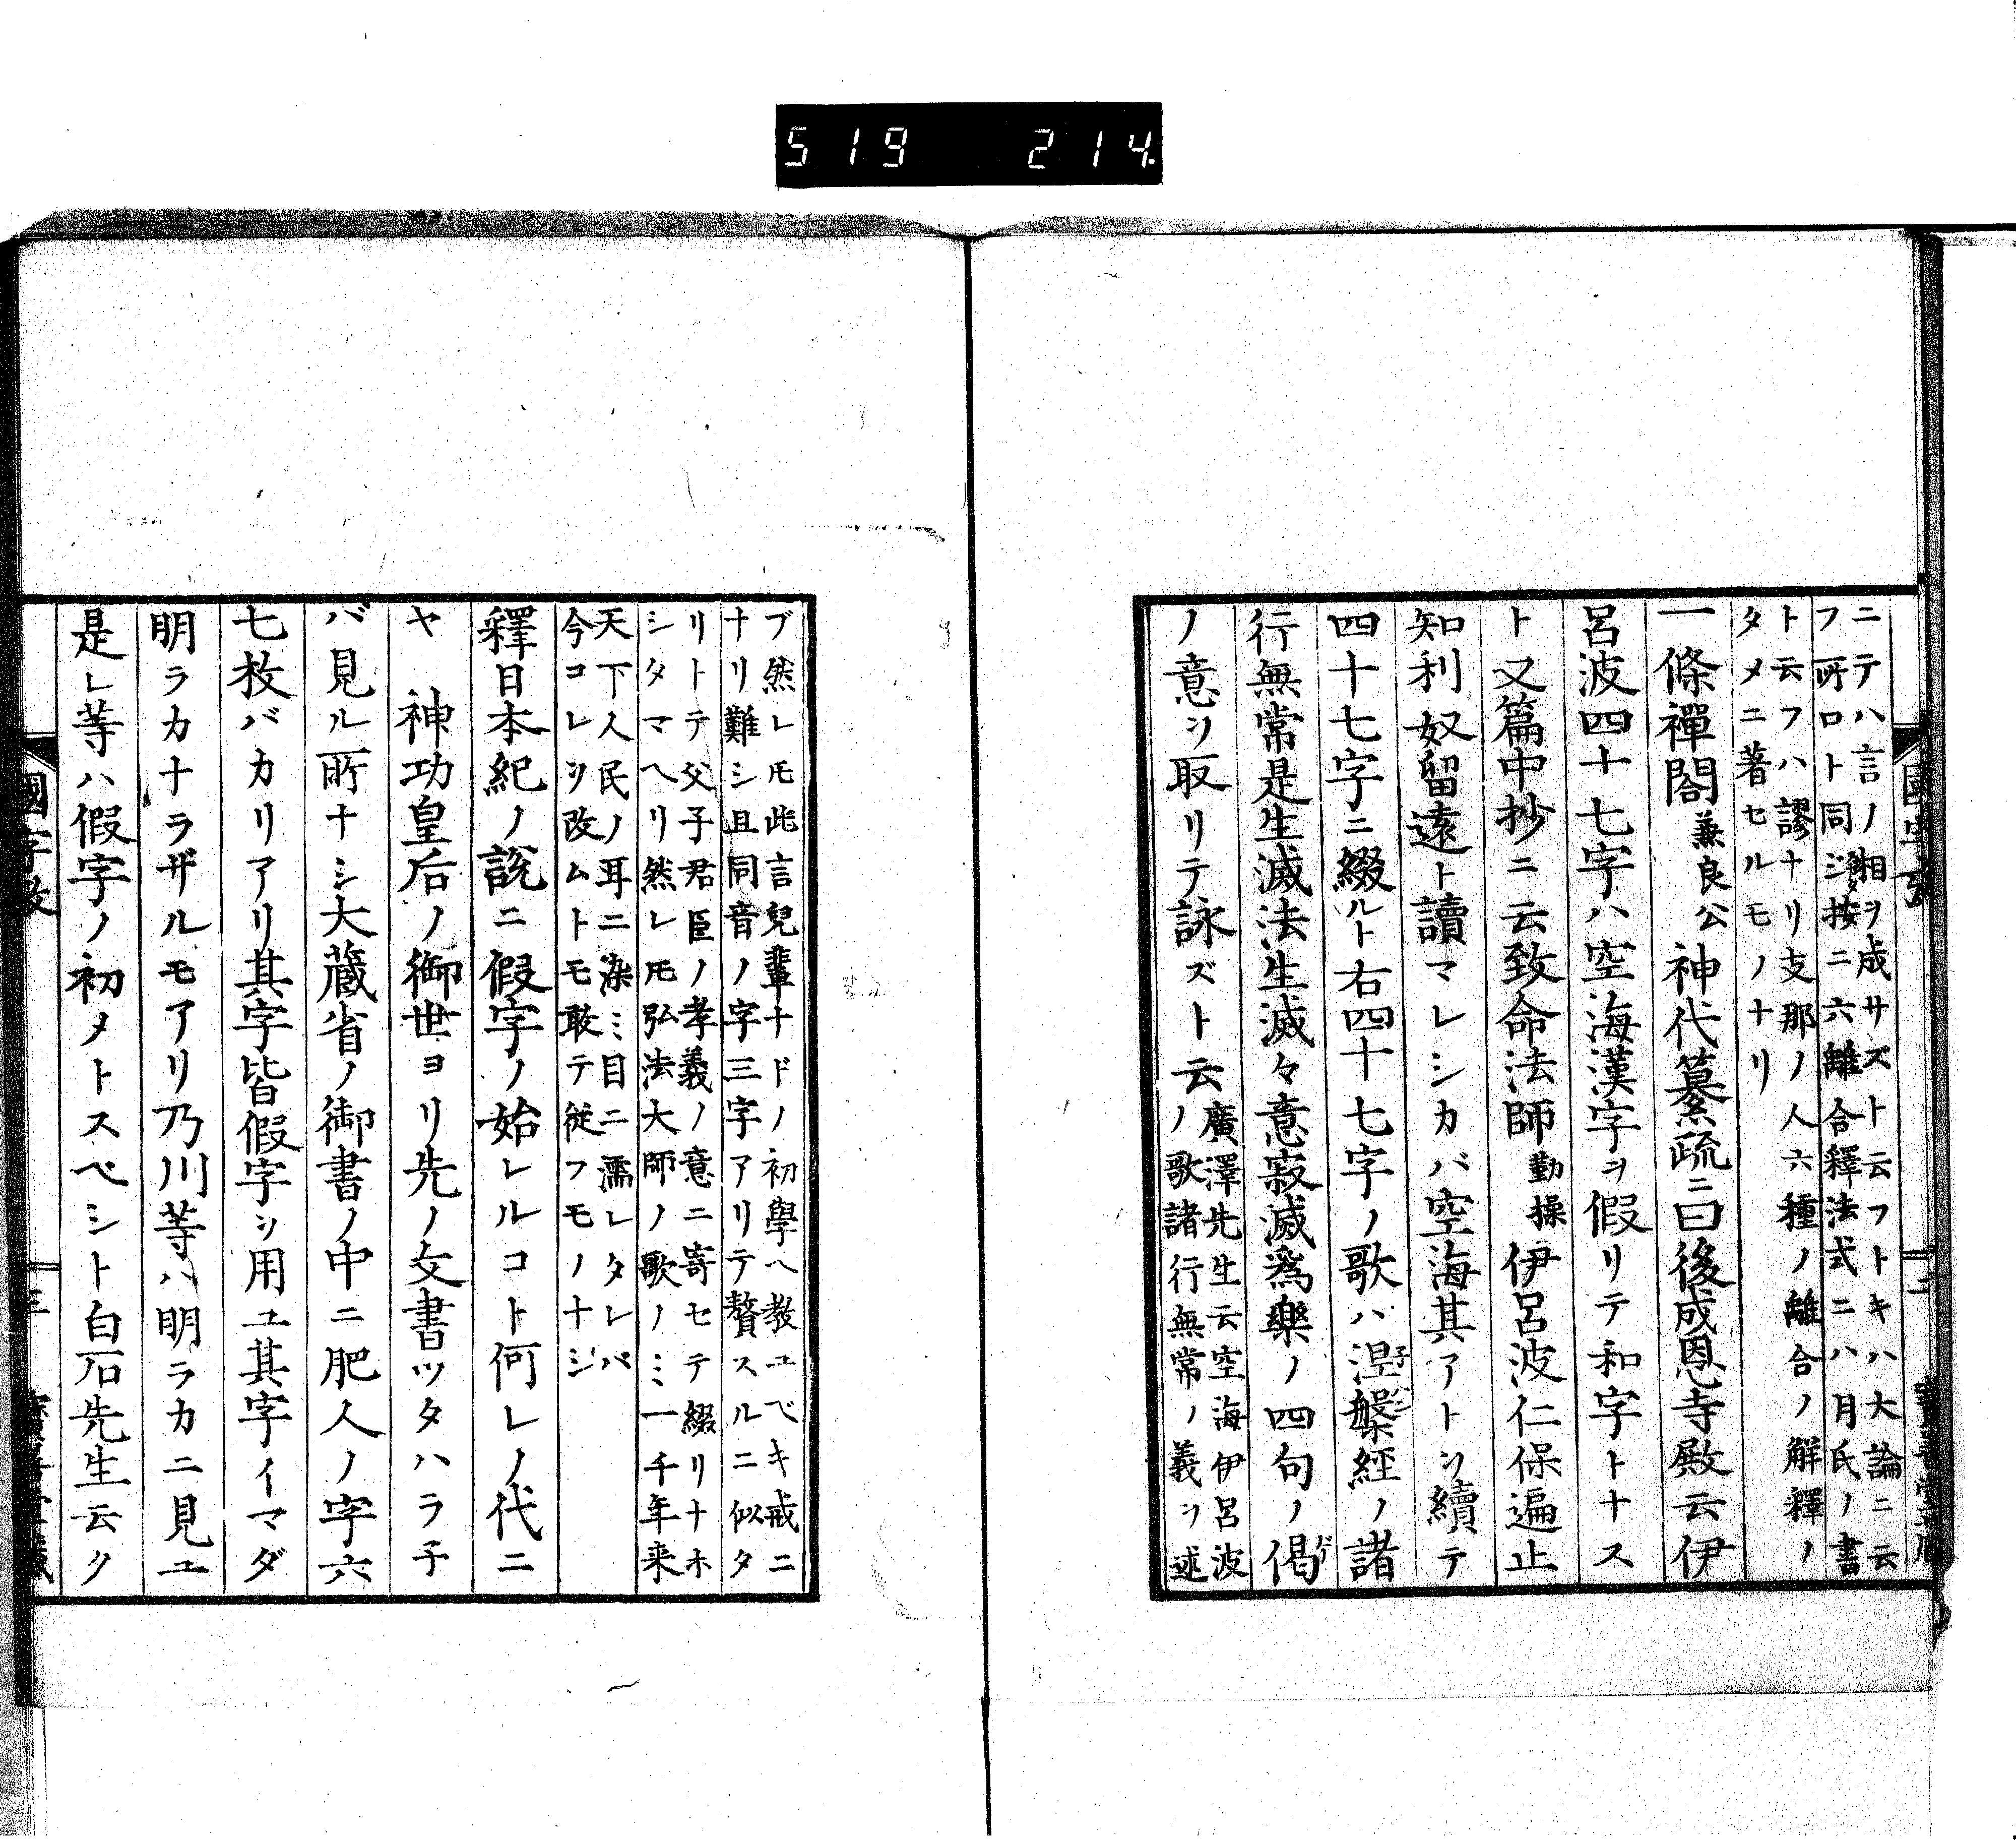 519 214.
ニテハ言ノ相ヲ成サズト云フトキハ大論ニ云
フ所ロト同ジ按ニ六離合釋法式ニハ月氏ノ書
ト云フハ謬ナリ支那ノ人六種ノ離合ノ解釋ノ
タメニ著セルモノナリ
一條禪閤兼良公神代纂疏ニ曰後成恩寺殿云伊
呂波四十七字ハ空海漢字ヲ假リテ和字トナス
ト又篇中抄ニ云致命法師勤操伊呂波仁保遍止
知利奴留遠ト讀マレシカバ空海其アトヲ續テ
四十七字ニ綴ルト右四十七字ノ歌ハ涅槃經ノ諸
行無常是生滅法生滅々意寂滅爲樂ノ四句ノ偈
ノ意ヲ取リテ詠ズト云廣澤先生云空海伊呂波
ノ歌諸行無常ノ義ヲ述
ブ然レ𪜈此言兒輩ナドノ初學ヘ教ユベキ戒ニ
ナリ難シ且同音ノ字三字アリテ贅スルニ似タ
リトテ父子君臣ノ孝義ノ意ニ寄セテ綴リナホ
シタマヘリ然レ𪜈弘法大師ノ歌ノミ一千年来
天下人民ノ耳ニ染ミ目ニ濡レタレバ
今コレヲ改ムトモ敢テ従フモノナシ
釋日本紀ノ說ニ假字ノ始レルコト何レノ代ニ
ヤ 神功皇后ノ御世ヨリ先ノ文書ツタハラ子
バ見ル所ナシ大蔵省ノ御書ノ中ニ肥人ノ字六
七枚バカリアリ其字皆假字ヲ用ユ其字イマダ
明ラカナラザルモアリ乃川等ハ明ラカニ見ユ
是レ等ハ假字ノ初メトスベシト白石先生云ク
國字攷
三